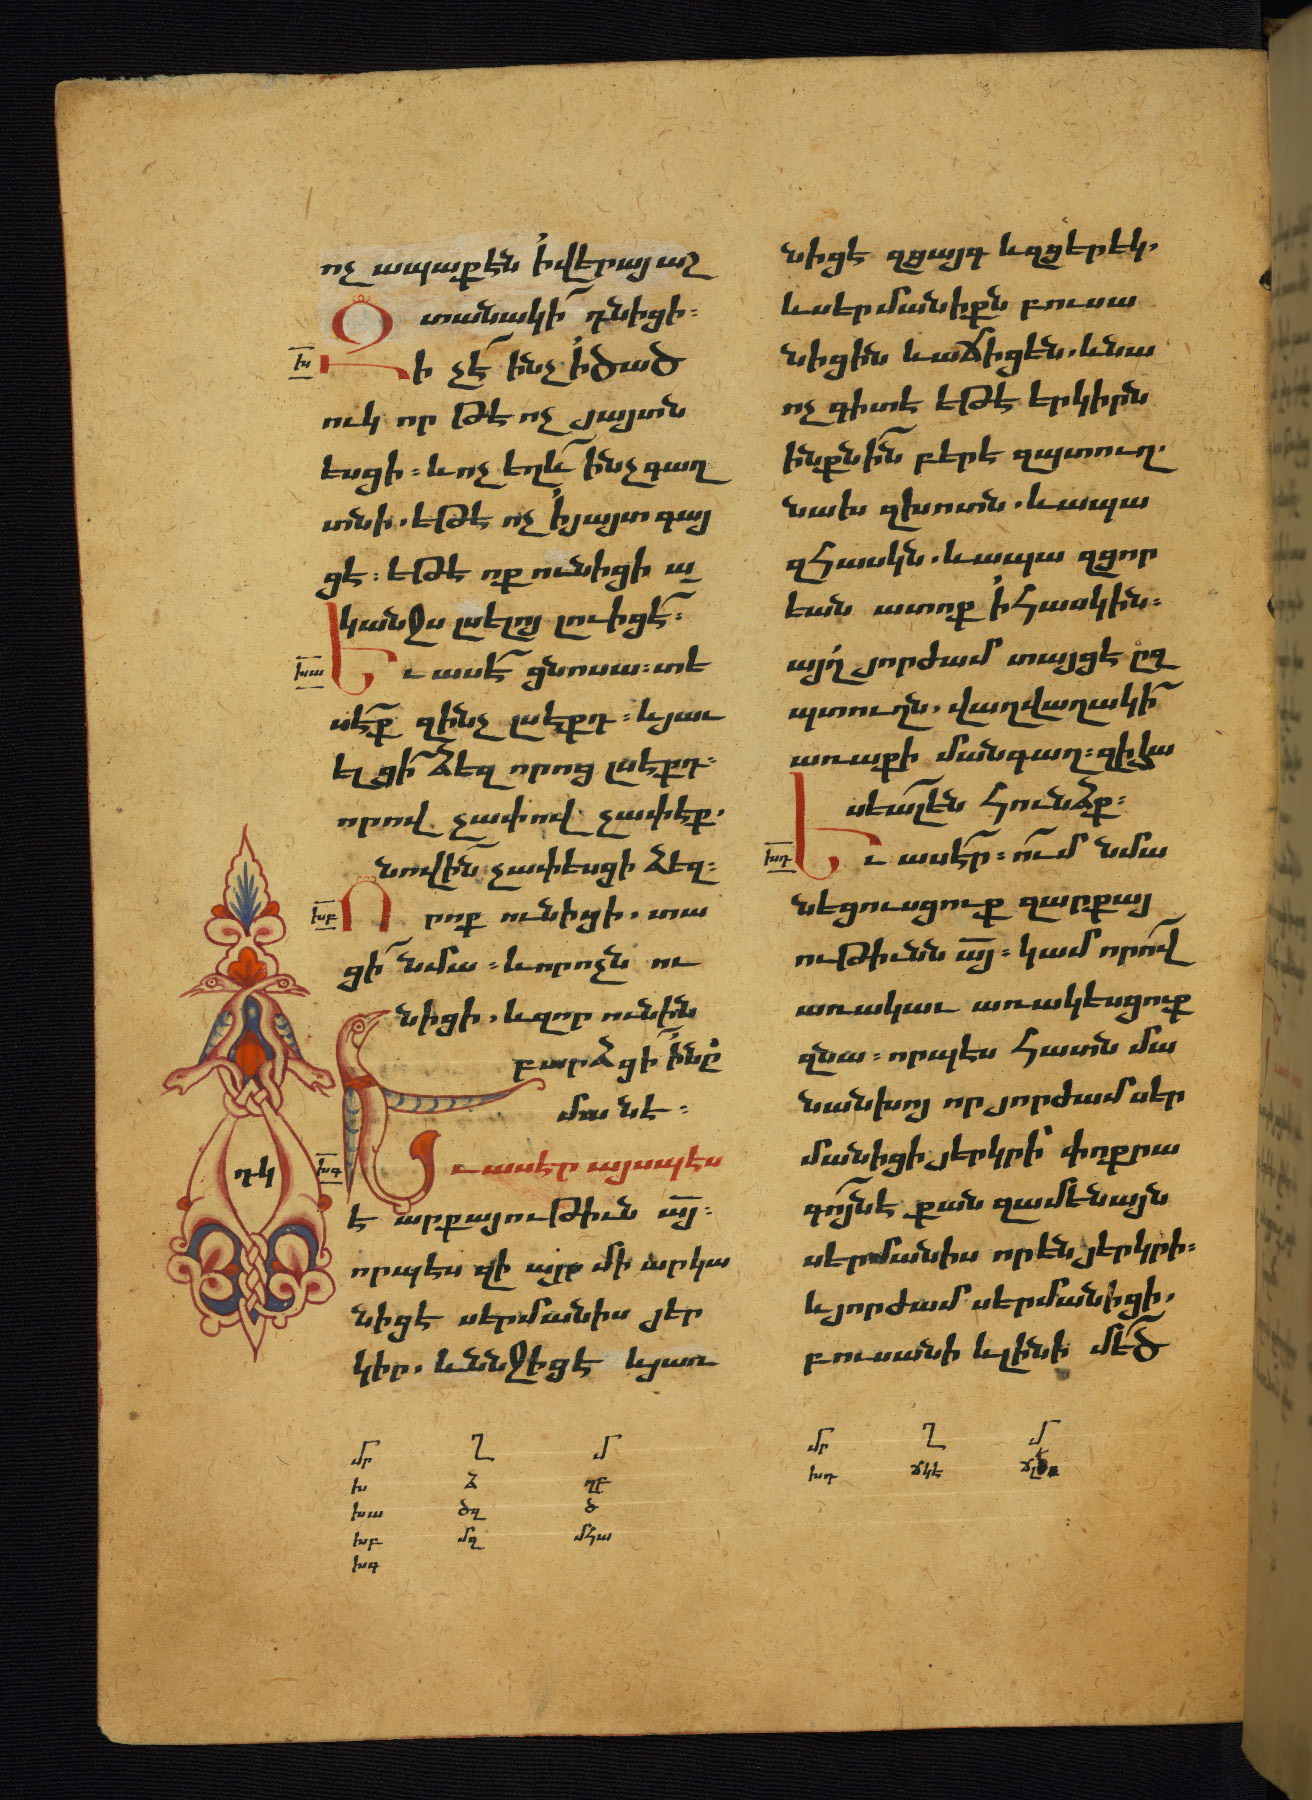 ոչ ապաքէն ի՛վերայ աշ
տանակի՞ դնիցի։
խ
Զի չէ՞ ինչ ի՛ծած
ուկ որ թէ ոչ յայտն
եսցի։ և ոչ եղև՞ ինչ գաղ
տնի. եթէ ոչ ի՛յայտ գայ
ցէ։ եթէ ոք ունիցի ա
կանջս լսելոյ լուիցէ՛։
խա
Եւ ասէ՞ ցնոսա։ տե
սէ՛ք զինչ լսէքդ։ և յաւ
ել ցի՞ ձեզ որոց լսէքդ։
որով չափով չափէք.
նովին չափեսցի ձեզ։
խբ
Որոք ունիցի. տա
ցի՞ նմա։ և որոչն ու
նիցի. և զոր ունին
բարձցի՞ ի՛նը
մանէ։
դկ
խգ
Եւ ասէր այսպէս
է արքայութիւն ա՟յ։
որպէս զի այր մի արկա
նիցէ սերմանիս յեր
կիր. և ննջիցէ և յառ
նիցէ զցայգ և զցերէկ.
և սերմանիքն բուսա
նիցին և աճիցեն. և նա
ոչ գիտէ եթէ երկիրն
ինքնին բերէ զպտուղ.
նախ զխոտն. և ապա
զհասկն. և ապա զցոր
եան ատոք ի՛հասկին։
այղ յորժամ տայցէ ըզ
պտուղն. վաղվաղակի՞
առաքի մանգաղ։ զի հա
սեալեն հունձք։
խդ
Եւ ասէր։ ո՟ւմ նմա
նեցուսցուք զարքայ
ութիւնն ա՟յ։ կամ որով
առակաւ առակեսցուք
զնա։ որպէս հատն մա
նանխոյ որ յորժամ սեր
մանիցի յերկրի՝ փոքրա
գոյնէ քան զամենայն
սերմանիս որեն յերկրի։
և յորժամ սերմանիցի.
բուսանի և լինի մե՛ծ
մր ղ մ
խ ձ ղբ
խա ծզ ծ
խբ մզ մհա
խգ
մր ղ մ
խդ ճկէ